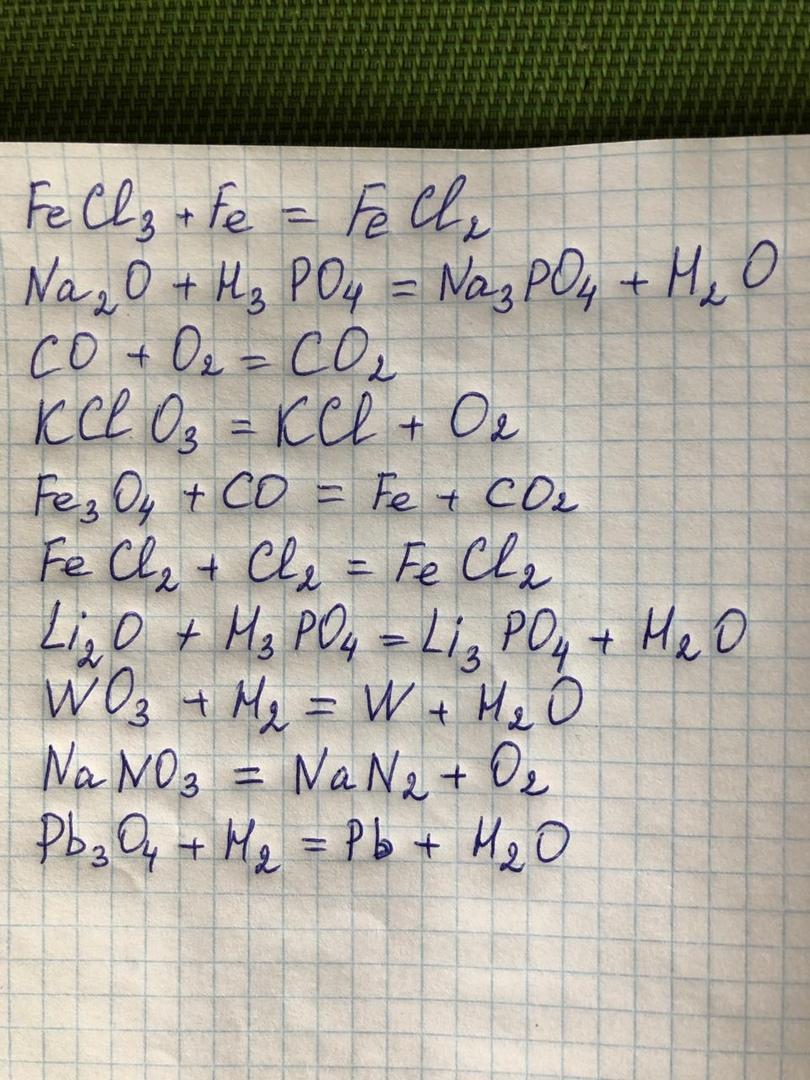 FeCl₃ + Fe = FeCl₂
Na₂O + H₃PO₄ = Na₃PO₄ + H₂O
CO + O₂ = CO₂
KClO₃ = KCl + O₂
Fe₃O₄ + CO = Fe + CO₂
FeCl₂ + Cl₂ = FeCl₂
Li₂O + H₃PO₄ = Li₃PO₄ + H₂O
WO₃ + H₂ = W + H₂O
NaNO₃ = NaN₂ + O₂
Pb₃O₄ + H₂ = Pb + H₂O